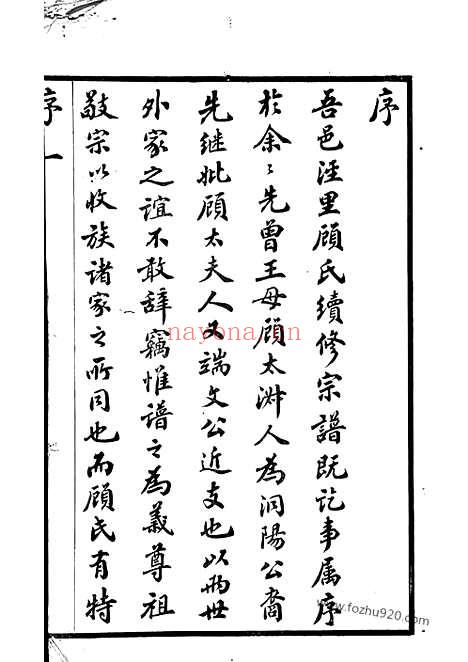 序
吾邑涇里顧氏續修宗譜既訖事属序
於余〻先曾王母顧太淑人為洞陽公裔
先继妣顧太夫人又端文公近支也以兩世
外家之誼不敢辞竊惟譜之為義尊祖
敬宗以收族諸家之所同也而顧氏有特
序 一
nayona.cn
www.fozhu920.com